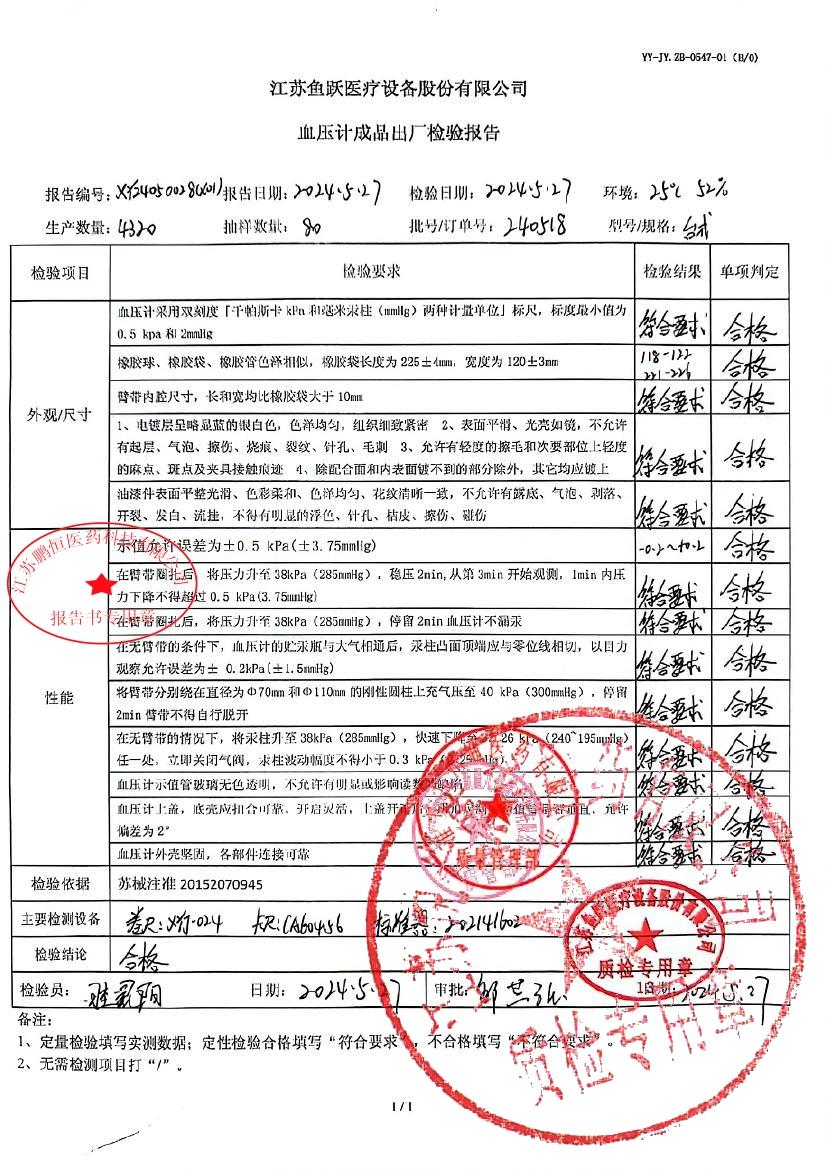 YY-JY.ZB-0547-01（B/0）
江苏鱼跃医疗设备股份有限公司
血压计成品出厂检验报告
报告编号：XY24050028(X01) 报告日期：2024.5.27 检验日期：2024.5.27 环境：25℃ 52%
生产数量：4320 抽样数量：80 批号/订单号：240518 型号/规格：台式
检验项目 检验要求 检验结果 单项判定
外观/尺寸
血压计采用双刻度「千帕斯卡 kPa 和毫米汞柱（mmHg）两种计量单位」标尺，标度最小值为
0.5 kpa 和 2mmHg
符合要求 合格
橡胶球、橡胶袋、橡胶管色泽相似，橡胶袋长度为 225±4mm，宽度为 120±3mm
118-122
221-226
合格
臂带内腔尺寸，长和宽均比橡胶袋大于 10mm
符合要求 合格
1、电镀层呈略显蓝的银白色，色泽均匀，组织细致紧密 2、表面平滑、光亮如镜，不允许
有起层、气泡、擦伤、烧痕、裂纹、针孔、毛刺 3、允许有轻度的擦毛和次要部位上轻度
的麻点、斑点及夹具接触痕迹 4、除配合面和内表面镀不到的部分除外，其它均应镀上
符合要求 合格
油漆件表面平整光滑、色彩柔和、色泽均匀、花纹清晰一致，不允许有露底、气泡、剥落、
开裂、发白、流挂，不得有明显的浮色、针孔、桔皮、擦伤、碰伤
符合要求 合格
性能
示值允许误差为±0.5 kPa(±3.75mmHg)
-0.2~+0.2 合格
在臂带圈扎后，将压力升至 38kPa（285mmHg），稳压 2min,从第 3min 开始观测，1min 内压
力下降不得超过 0.5 kPa(3.75mmHg)
符合要求 合格
在臂带圈扎后，将压力升至 38kPa（285mmHg），停留 2min 血压计不漏汞
符合要求 合格
在无臂带的条件下，血压计的贮汞瓶与大气相通后，汞柱凸面顶端应与零位线相切，以目力
观察允许误差为± 0.2kPa(±1.5mmHg)
符合要求 合格
将臂带分别绕在直径为Φ70mm 和Φ110mm 的刚性圆柱上充气压至 40 kPa（300mmHg），停留
2min 臂带不得自行脱开
符合要求 合格
在无臂带的情况下，将汞柱升至 38kPa（285mmHg），快速下降至 26 kPa（240~195mmHg）
任一处，立即关闭气阀，汞柱波动幅度不得小于 0.3 kPa
符合要求 合格
血压计示值管玻璃无色透明，不允许有明显或影响读数的缺陷
符合要求 合格
血压计上盖，底壳应扣合可靠，开启灵活，上盖开启后 垂直，允许
偏差为 2°
符合要求 合格
血压计外壳坚固，各部件连接可靠
符合要求 合格
检验依据 苏械注准 20152070945
主要检测设备 卷尺：XY-024 卡尺：CA60456 标准器：202141602
检验结论 合格
检验员： 日期：2024.5.27 审批： 日期：2024.5.27
备注：
1、定量检验填写实测数据；定性检验合格填写“符合要求”，不合格填写“不符合要求”。
2、无需检测项目打“/”。
1/1
江苏鹏恒医药科技有限公司
报告书专用章
质量管理部
江苏鱼跃医疗设备股份有限公司
质检专用章
质检专用章